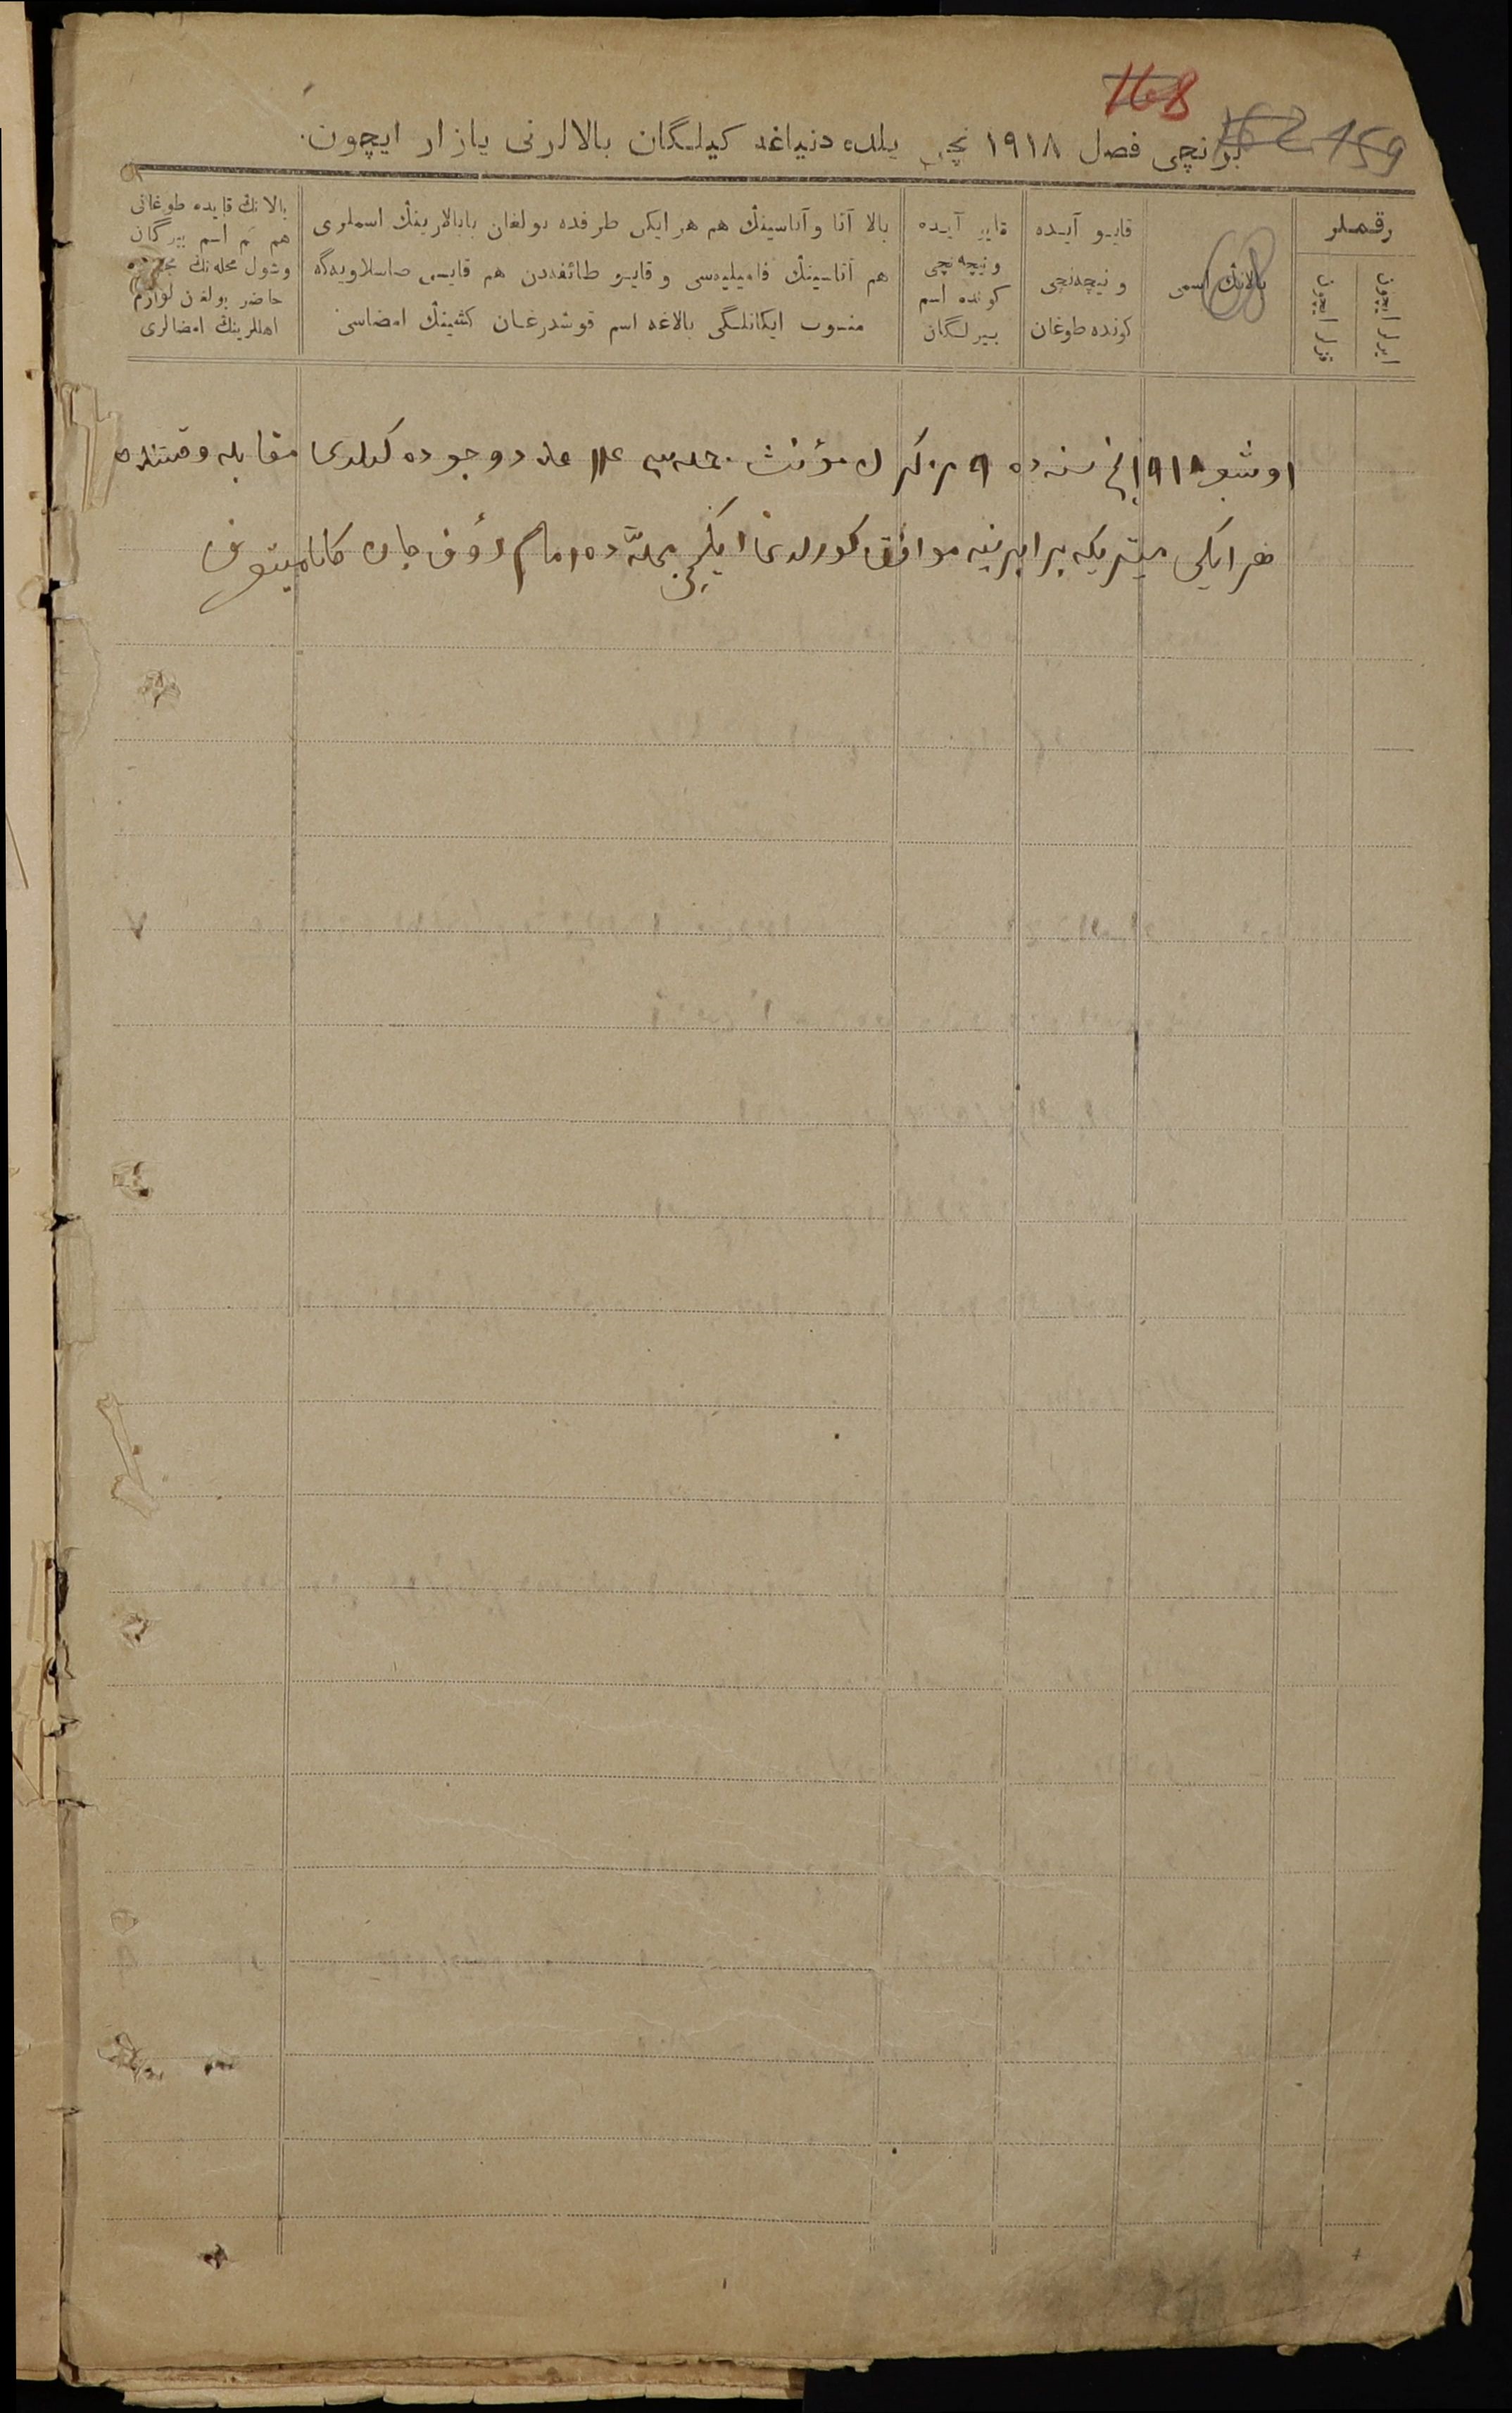 168
159
برنچی فصل ١٩١٨ نچی یلده دنیاغه کیلگان بالالرنی یازار ایچون.
رقملر
ایرلر ایچون
قزلر ایچون
بالانڭ اسمی
قایو آیده
و نیچه‌نچی
کونده طوغان
قایو آیده
و نیچه‌نچی
کونده اسم
بیرلگان
بالا آتا و آناسینڭ هم هر ایکی طرفده بولغان بابالارینڭ اسملری
هم آتاسینڭ فامیلیه‌سی و قایو طائفه‌دن هم قایسی صاسلاویه‌گه
منسوب ایکانلگی بالاغه اسم قوشدرغان کشینڭ امضاسی
بالانڭ قایده طوغانی
هم اسم بیرگان
وشول محله‌نڭ
حاضر بولغن لوازم
اهللرینڭ امضالری
اوشبو ١٩١٨ نچی سنه ده ٩ مذکر مؤنث جمله‌سی عدد وجوده کیلدی مقابله وقتنده
هر ایکی میتریکه برابرینه موافق کورلدی ایکنچی محله ده امام رؤف جان